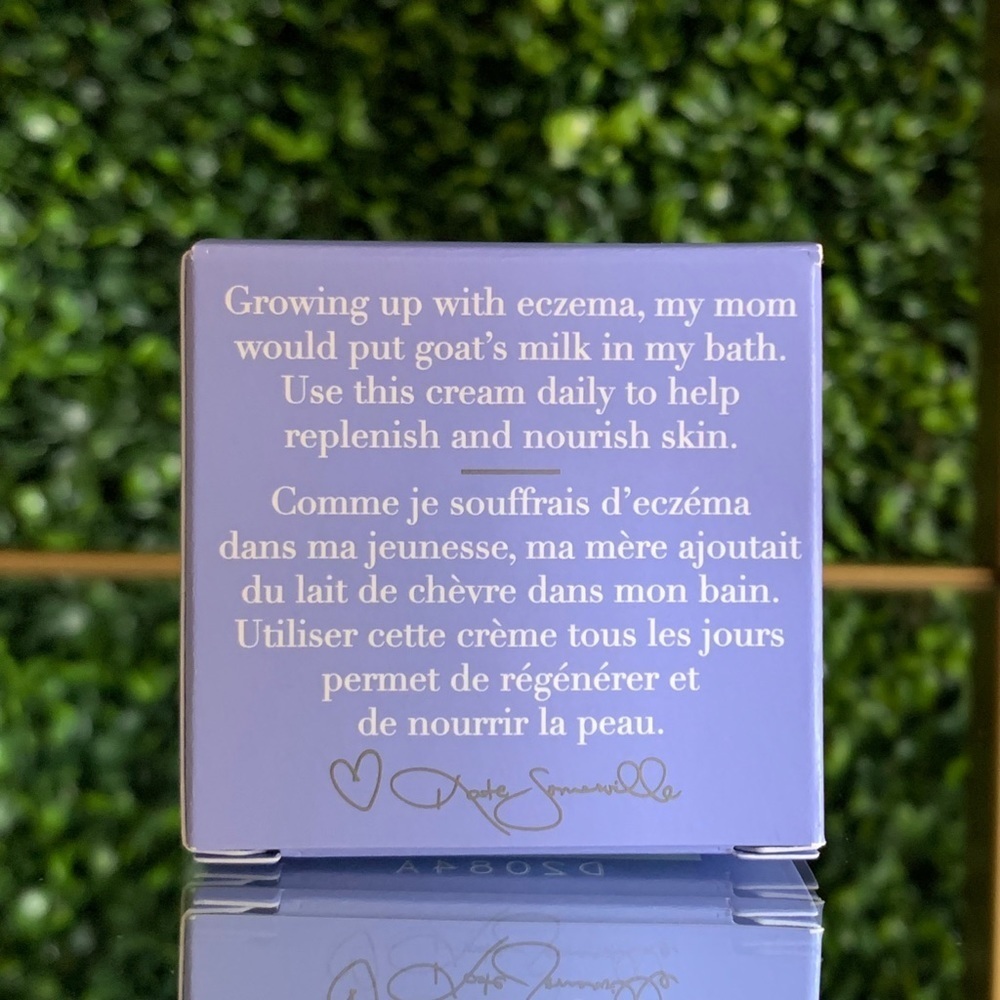 Growing up with eczema, my mom
would put goat's milk in my bath.
Use this cream daily to help
replenish and nourish skin.
Comme je souffrais d'eczéma
dans ma jeunesse, ma mère ajoutait
du lait de chèvre dans mon bain.
Utiliser cette crème tous les jours
permet de régénérer et
de nourrir la peau.
Kate Somerville
D2084A